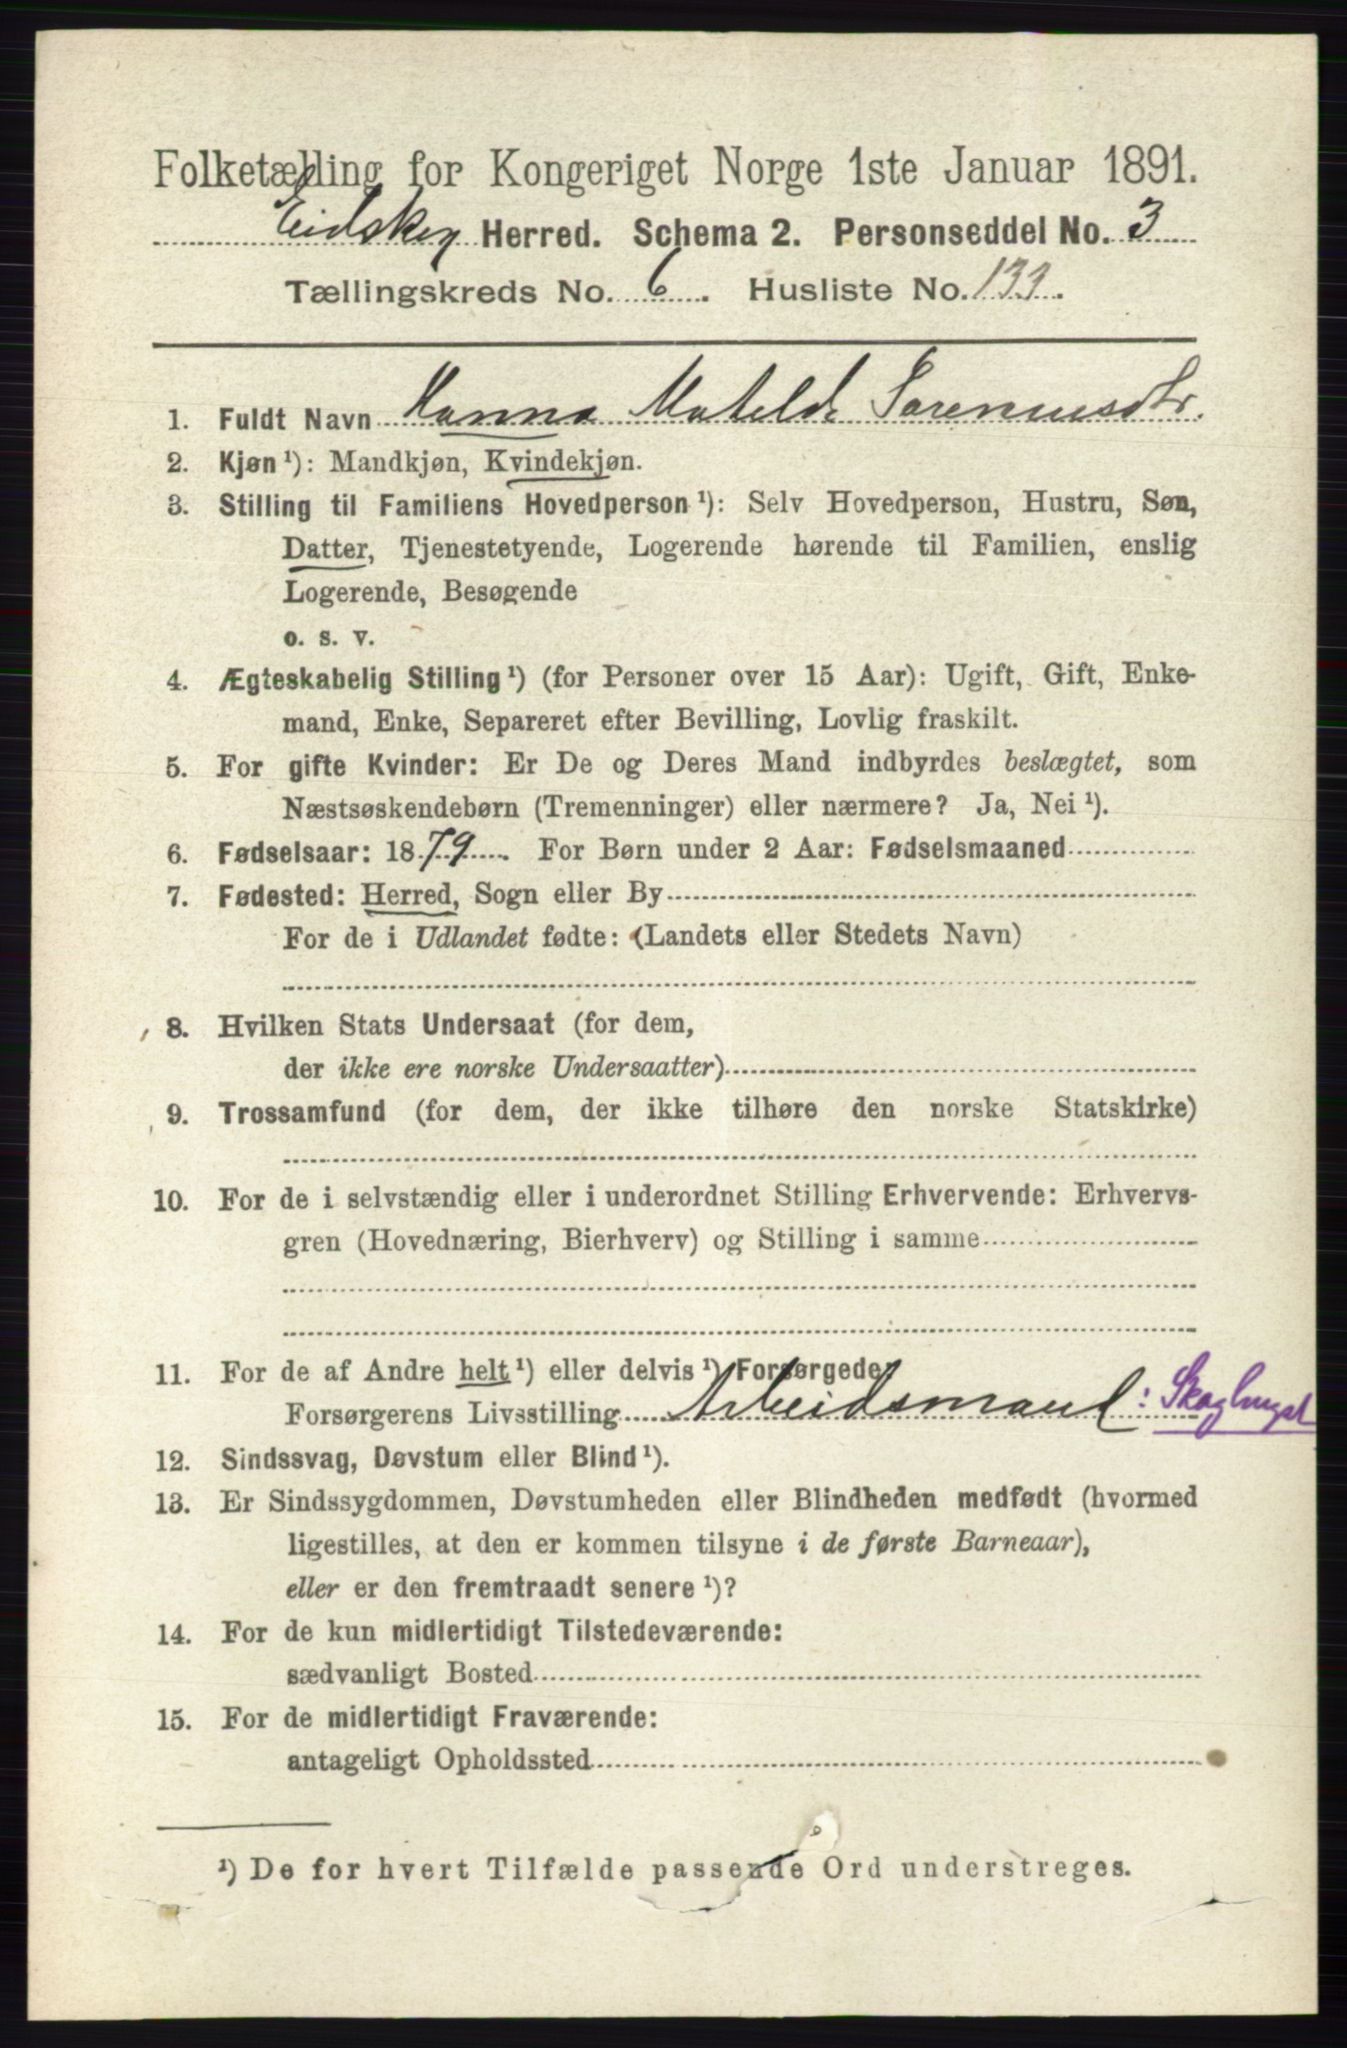 Folketælling for Kongeriget Norge 1ste Januar 1891.
Eidskog Herred. Schema 2. Personseddel No. 3
Tællingskreds No. 6. Husliste No. 133.
1. Fuldt Navn Hanna Matilde Sorenusdtr.
2. Kjøn ¹): Mandkjøn, Kvindekjøn.
3. Stilling til Familiens Hovedperson ¹): Selv Hovedperson, Hustru, Søn,
Datter, Tjenestetyende, Logerende hørende til Familien, enslig
Logerende, Besøgende
o. s. v.
4. Ægteskabelig Stilling ¹) (for Personer over 15 Aar): Ugift, Gift, Enke-
mand, Enke, Separeret efter Bevilling, Lovlig fraskilt.
5. For gifte Kvinder: Er De og Deres Mand indbyrdes beslægtet, som
Næstsøskendebørn (Tremenninger) eller nærmere? Ja, Nei ¹).
6. Fødselsaar: 1879. For Børn under 2 Aar: Fødselsmaaned
7. Fødested: Herred, Sogn eller By
For de i Udlandet fødte: (Landets eller Stedets Navn)
8. Hvilken Stats Undersaat (for dem,
der ikke ere norske Undersaatter)
9. Trossamfund (for dem, der ikke tilhøre den norske Statskirke)
10. For de i selvstændig eller i underordnet Stilling Erhvervende: Erhvervs-
gren (Hovednæring, Bierhverv) og Stilling i samme
11. For de af Andre helt ¹) eller delvis ¹) Forsørgede
Forsørgerens Livsstilling Arbeidsmand : Skoghugst
12. Sindssvag, Døvstum eller Blind ¹).
13. Er Sindssygdommen, Døvstumheden eller Blindheden medfødt (hvormed
ligestilles, at den er kommen tilsyne i de første Barneaar),
eller er den fremtraadt senere ¹)?
14. For de kun midlertidigt Tilstedeværende:
sædvanligt Bosted
15. For de midlertidigt Fraværende:
antageligt Opholdssted
¹) De for hvert Tilfælde passende Ord understreges.